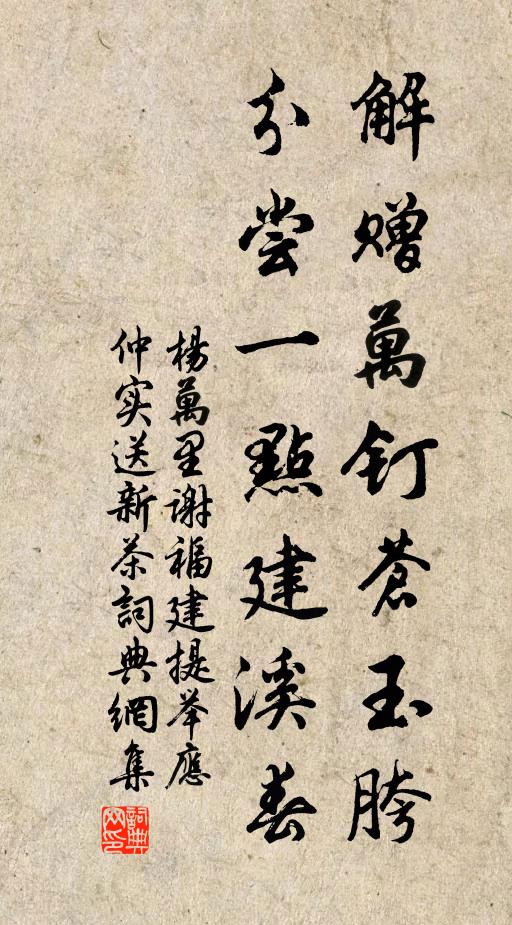 解贈萬钉蒼玉胯
分尝一點建溪春
楊萬里谢福建提举應
仲实送新茶詞典網集
詞典网印